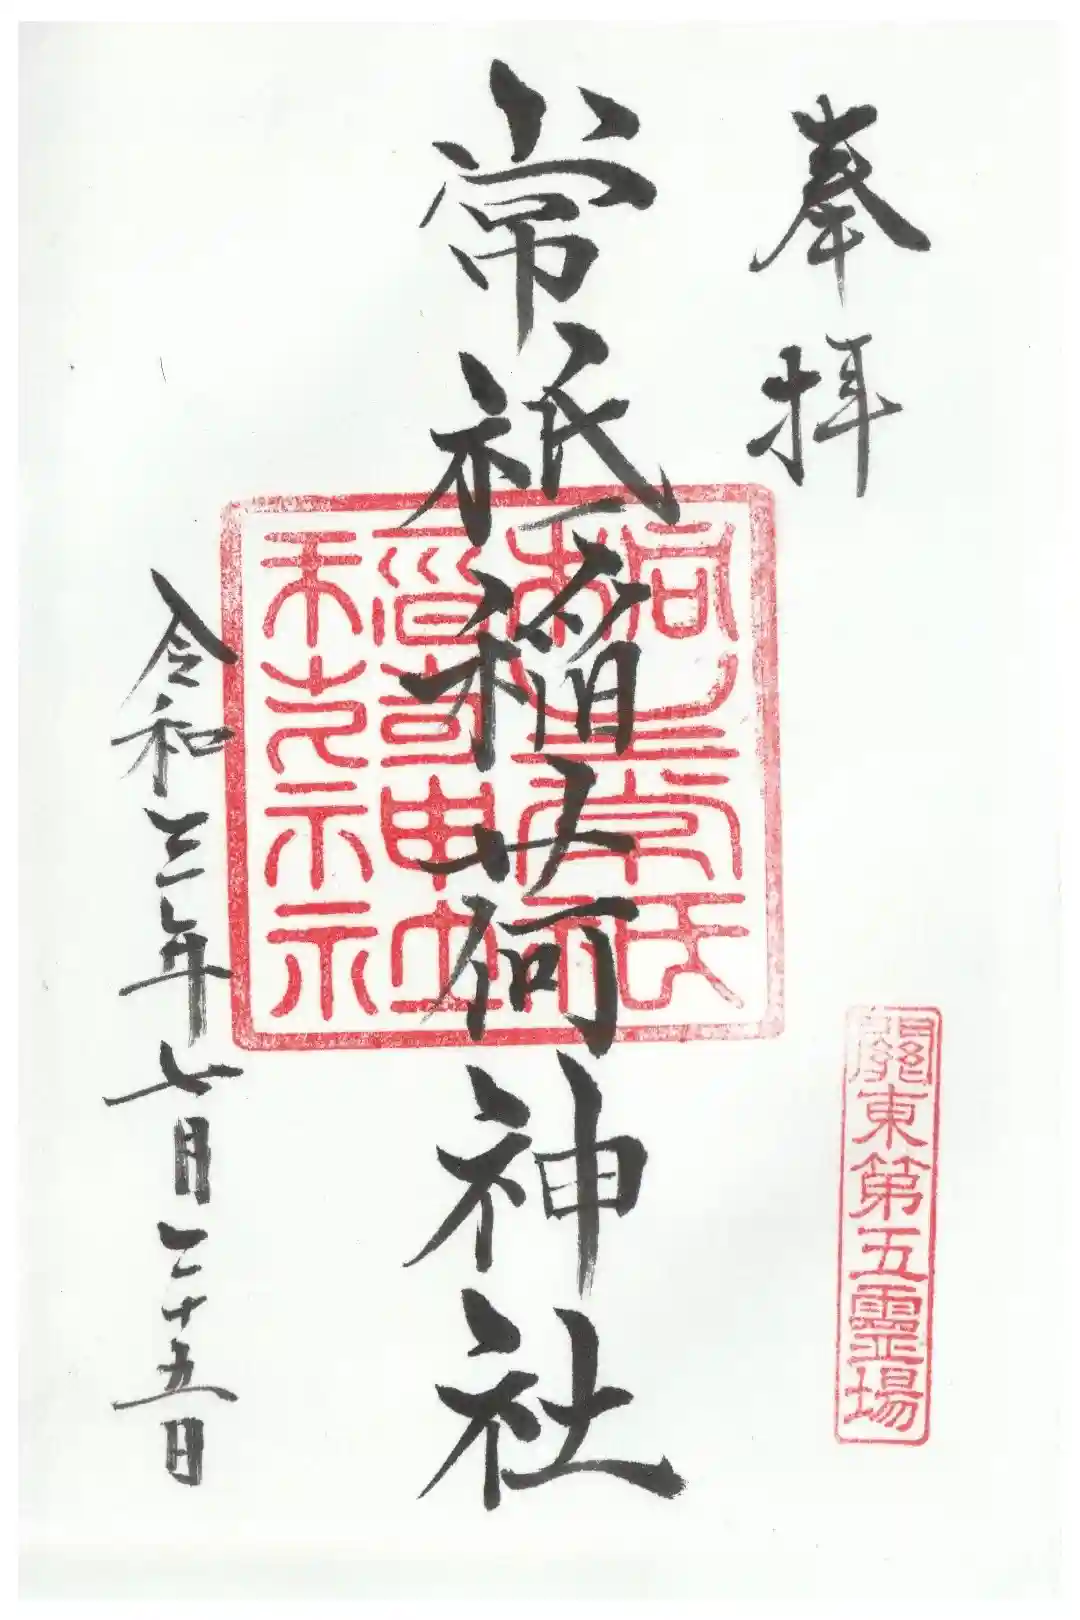 奉拝
關東第五靈場
常祇稲荷神社
桐生常祇
稲荷神社
令和三年七月二十五日